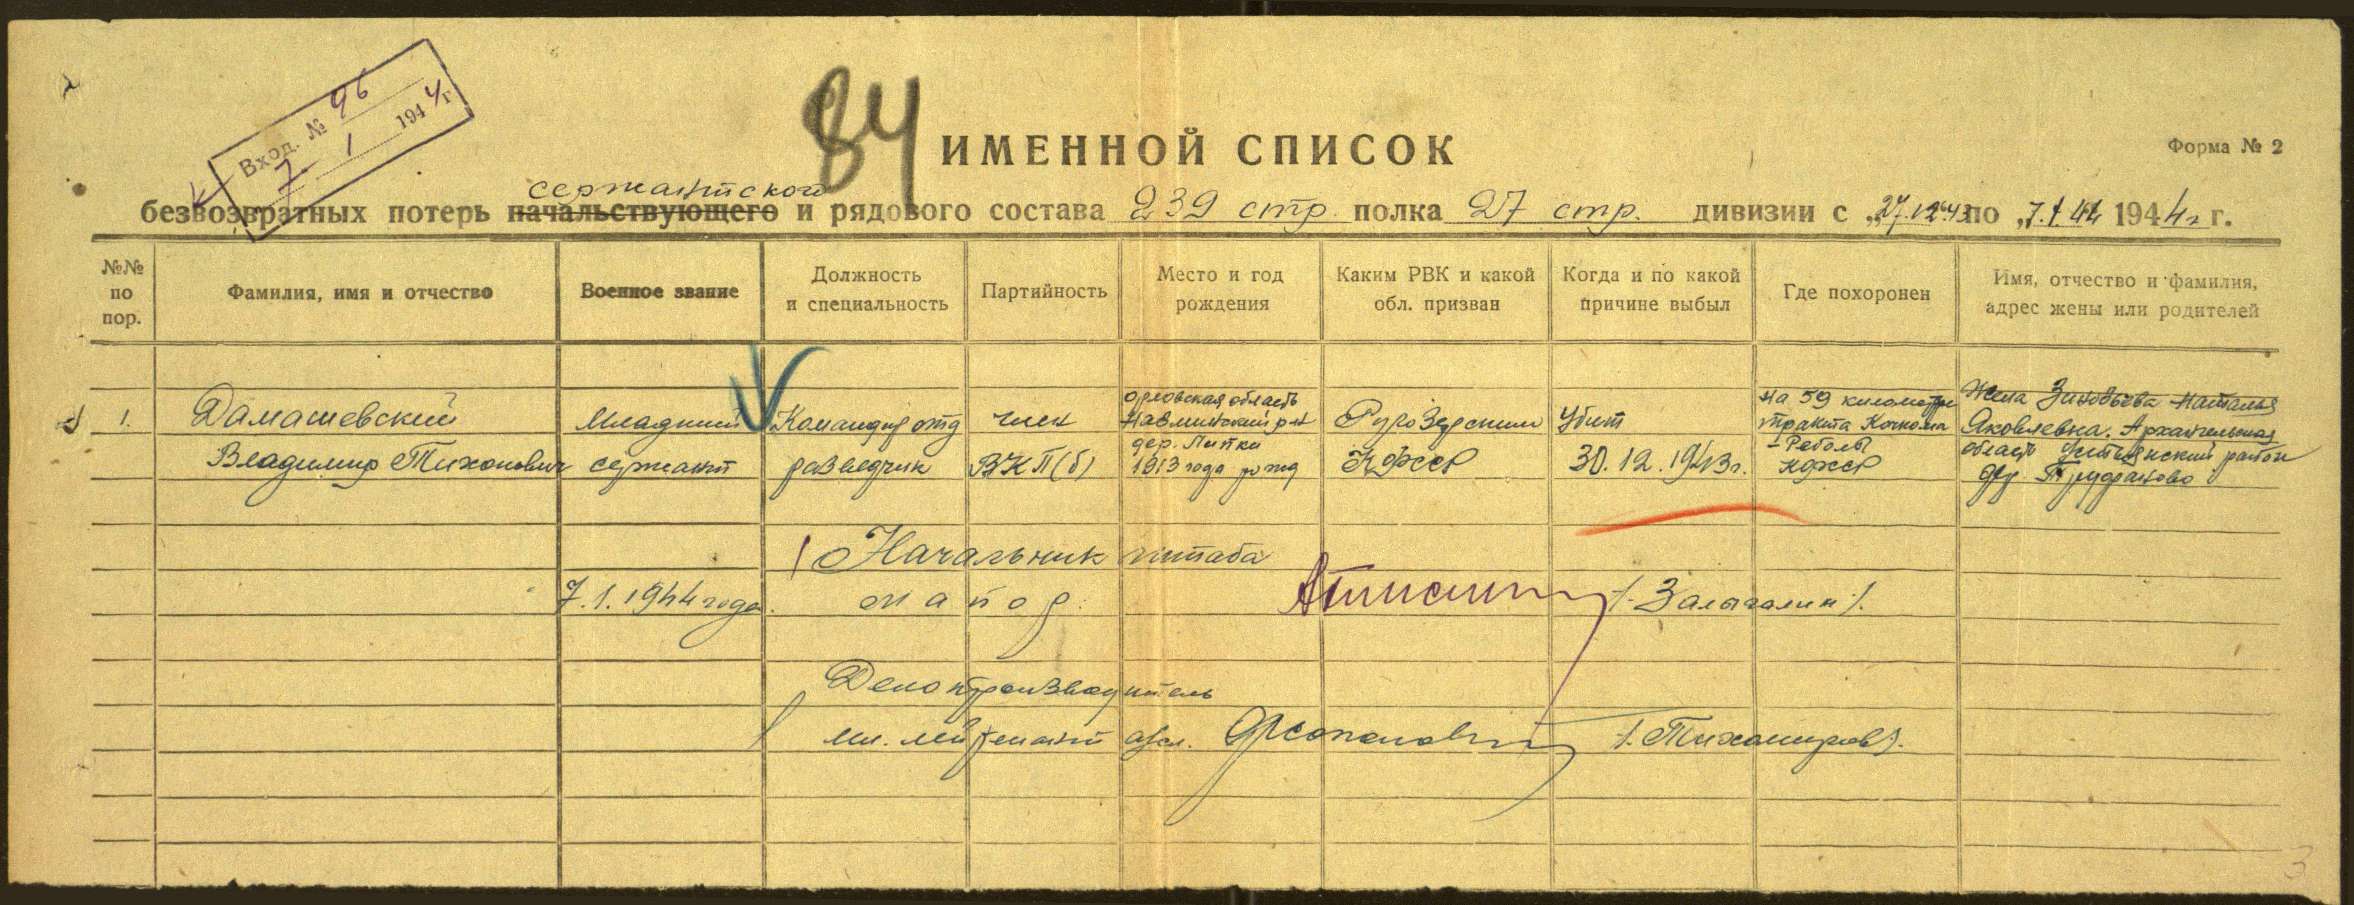 Вход. № 96
7 1 1944 г.
84
ИМЕННОЙ СПИСОК
Форма № 2
сержантского
безвозвратных потерь начальствующего и рядового состава 239 стр. полка 27 стр. дивизии с „27.12.43 по „7.1.44 1944 г. г.
№№ по пор.
Фамилия, имя и отчество
Военное звание
Должность и специальность
Партийность
Место и год рождения
Каким РВК и какой обл. призван
Когда и по какой причине выбыл
Где похоронен
Имя, отчество и фамилия, адрес жены или родителей
1.
Дамашевский
Владимир Тихонович
Младший
сержант
Командир отд
разведчик
член
ВКП(б)
орловская область
Навлинский р-н
дер. Липки
1913 года рожд
Ругозерским
КФССР
Убит
30.12.1943 г.
на 59 километре
тракта Кочкома
- Реболы
КФССР
Жена Зиновьева Наталья
Яковлевна. Архангельская
область Устьянский район
дер.
Начальник штаба
7.1.1944 года.
майор
Делопроизводитель
мл. лейтенант адм.
/.Тихомиров/.
3